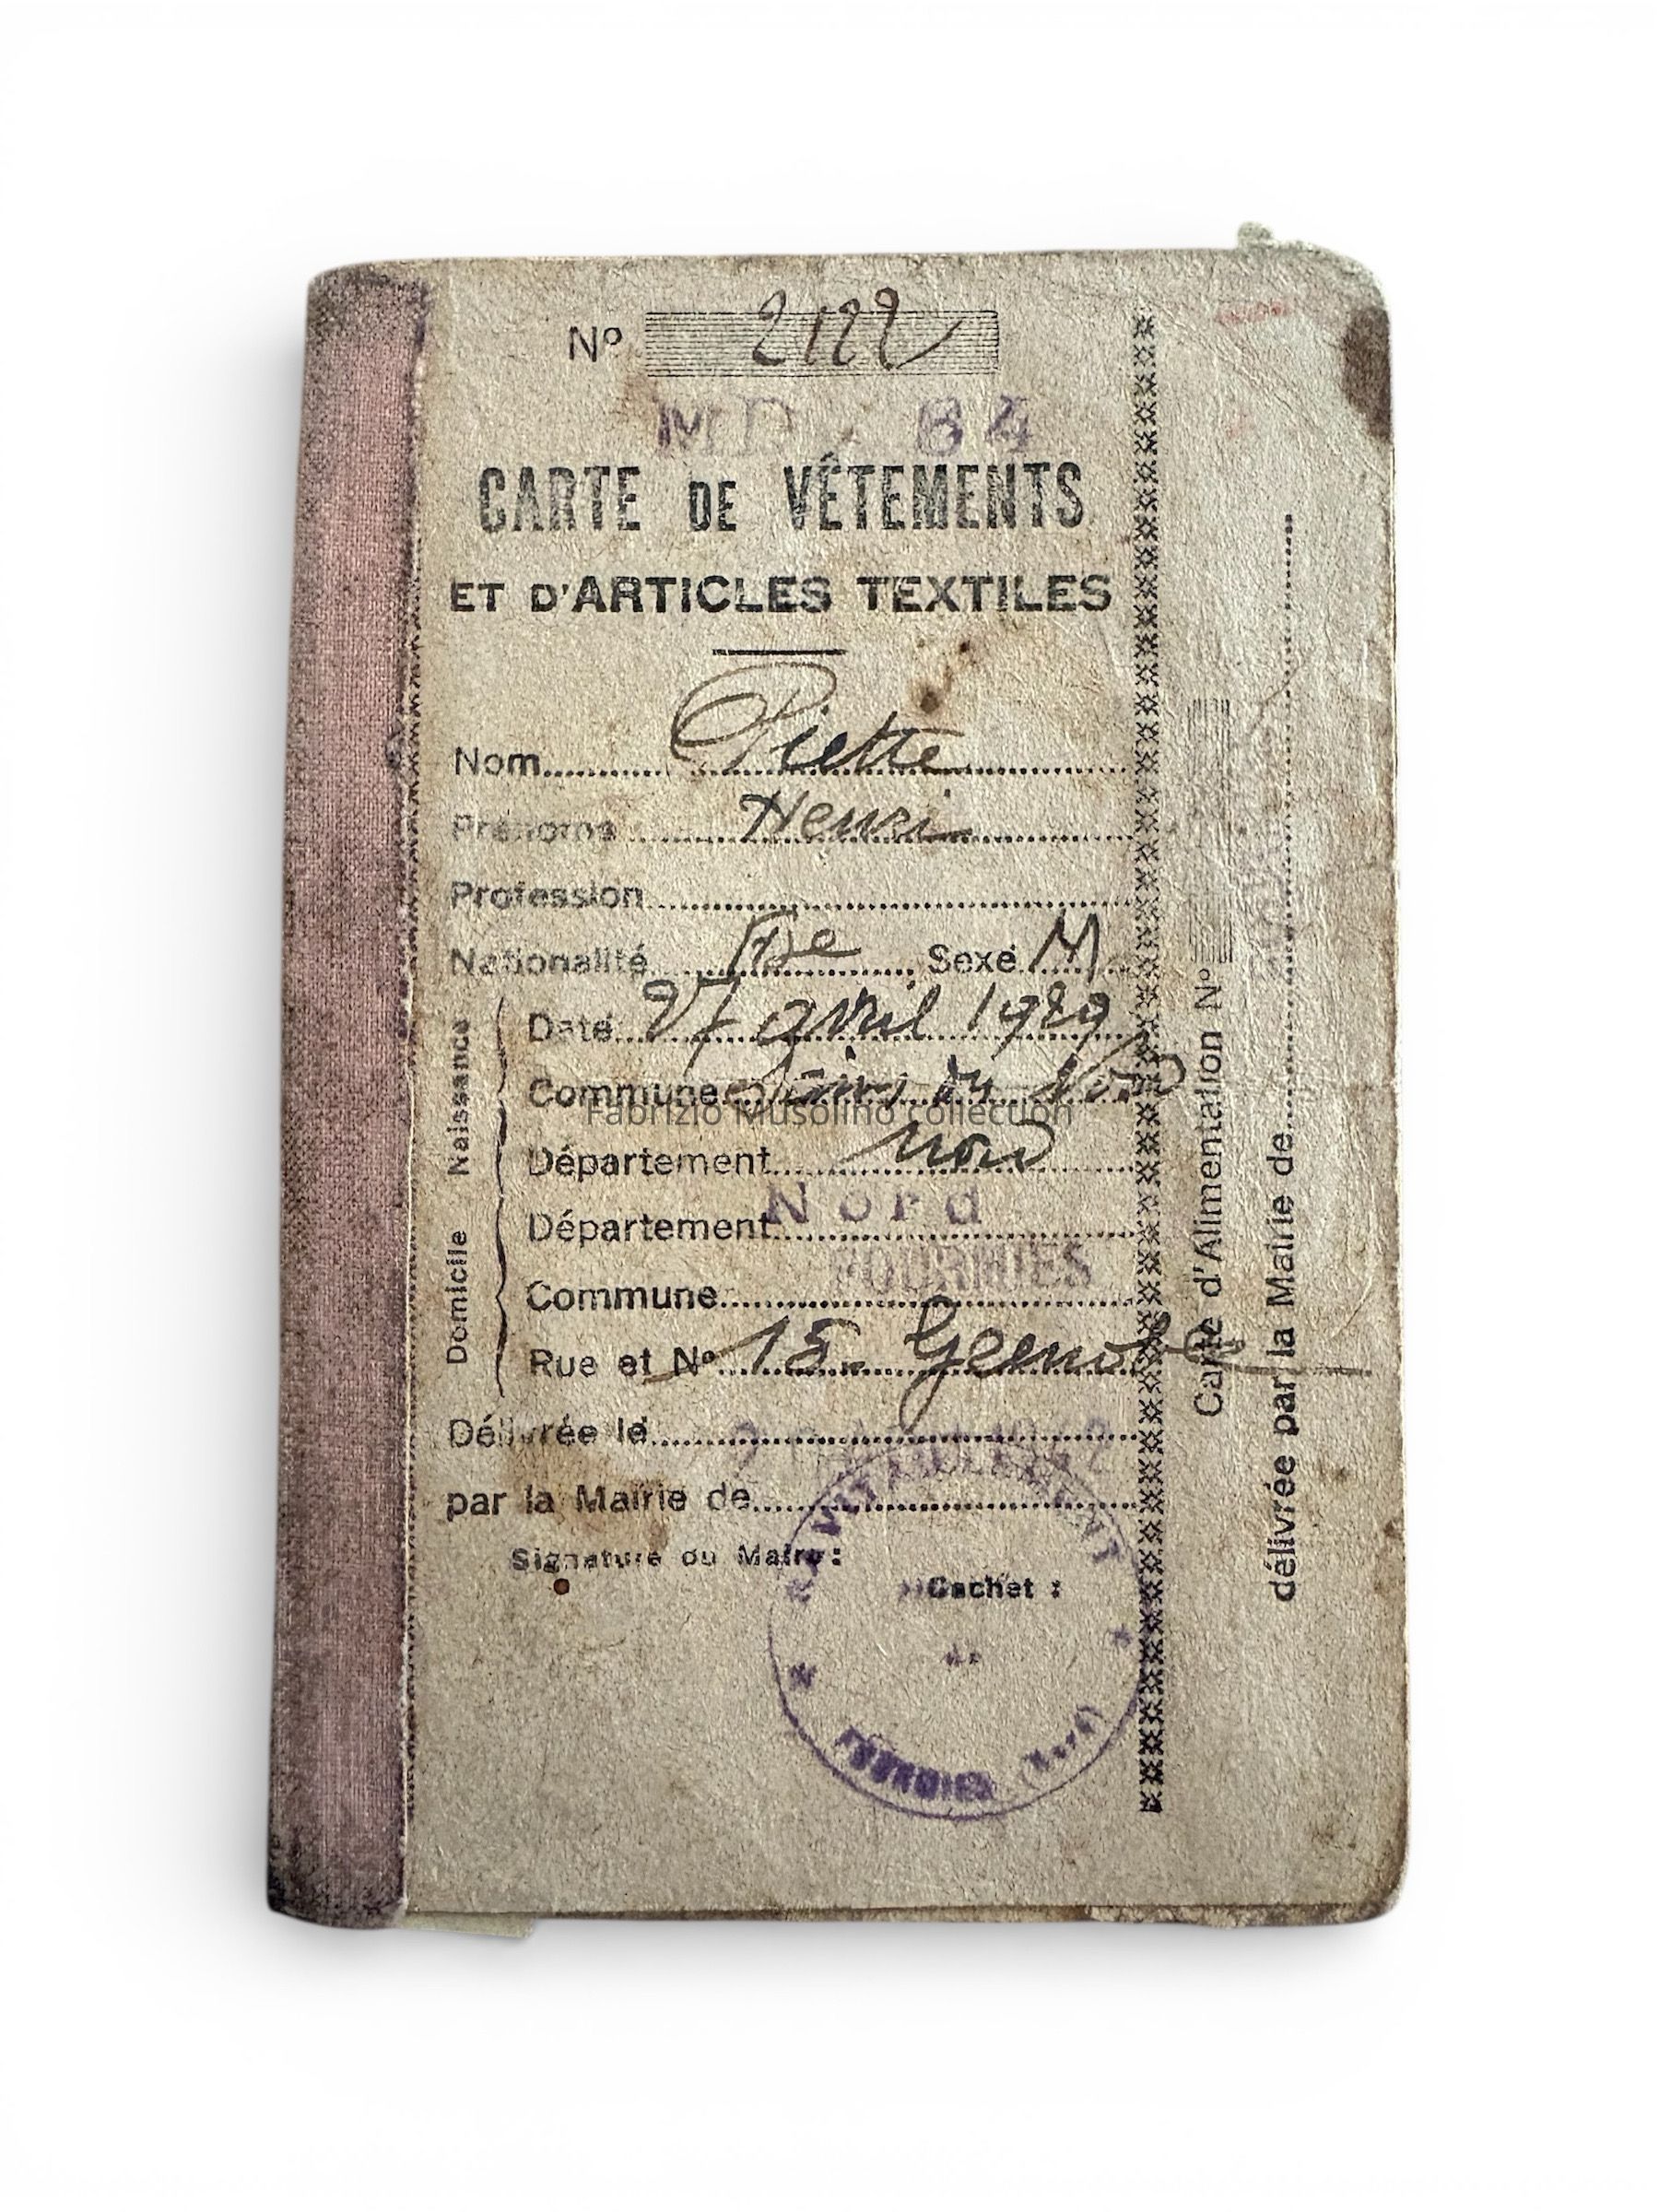 Nº 2122
MD. 84
CARTE DE VÊTEMENTS
ET D'ARTICLES TEXTILES
Nom Piette
Prénoms Henri
Profession
Nationalité fse Sexe M
Naissance
Date 27 avril 1929
Commune Sains du Nord
Fabrizio Musolino collection
Département Nord
Domicile
Département Nord
Commune FOURMIES
Rue et Nº 15.
Délivrée le
par la Mairie de
Signature du Maire:
Cachet :
RAVITAILLEMENT
FOURMIES (Nord)
Carte d'Alimentation Nº
délivrée par la Mairie de